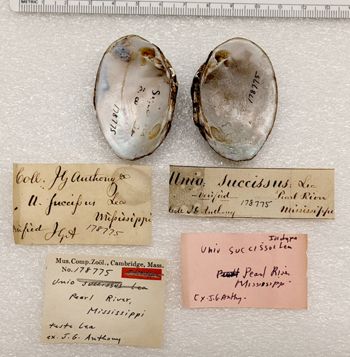 METRIC 1
178775
178775
Coll. J G Anthony
U. Lea
Mississippi
J G A 178775
Unio Succissus. Lea
Pearl River
178775 Mississippi
Mus. Comp. Zoöl., Cambridge, Mass.
No. 178775
Unio Succissus Lea
Pearl River,
Mississippi
teste Lea
ex. J. G. Anthony
Unio succissus Lea
Pearl River
Mississippi
Ex. J. G. Anthy.